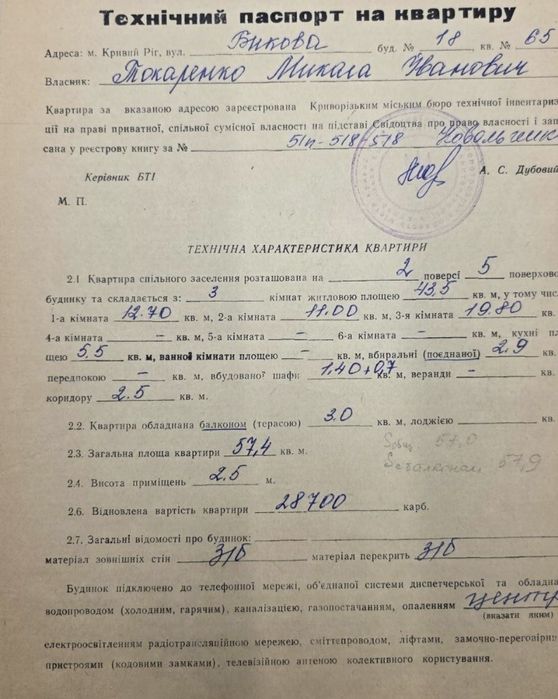 Технічний паспорт на квартиру
Адреса: м. Кривий Ріг, вул. Бикова буд. № 18 кв. № 65
Власник: Токаренко Микола Іванович
Квартира за вказаною адресою зареєстрована Криворізьким міським бюро технічної інвентариз
ції на праві приватної, спільної сумісної власності на підставі Свідоцтва про право власності і зап
сана у реєстрову книгу за № 51п-518-518
Керівник БТІ А. С. Дубовий
М. П.
ТЕХНІЧНА ХАРАКТЕРИСТИКА КВАРТИРИ
2.1 Квартира спільного заселення розташована на 2 поверсі 5 поверхово
будинку та складається з: 3 кімнат житловою площею 43,5 кв. м, у тому чис
1-а кімната 12.70 кв. м, 2-а кімната 11.00 кв. м, 3-я кімната 19.80 кв.
4-а кімната — кв. м, 5-а кімната — 6-а кімната — кв. м, кухні пл
щею 5.5 кв. м, ванної кімнати площею — кв. м, вбиральні (поєднаної) 2.9 кв.
передпокою — кв. м, вбудованої шафи 1.40+0,7 кв. м, веранди — кв.
коридору 2.5 кв. м.
2.2. Квартира обладнана балконом (терасою) 3.0 кв. м, лоджією кв.
Sобщ. 57,0
2.3. Загальна площа квартири 57,4 кв. м.
S с балконом 57,9
2.4. Висота приміщень 2.5 м.
2.6. Відновлена вартість квартири 28700 карб.
2.7. Загальні відомості про будинок:
матеріал зовнішніх стін з/б матеріал перекрить з/б
Будинок підключено до телефонної мережі, об'єднаної системи диспетчерської та обладна
водопроводом (холодним, гарячим), каналізацією, газопостачанням, опаленням центр
(вказати яким)
електроосвітленням радіотрансляційною мережею, сміттепроводом, ліфтами, замочно-переговірни
пристроями (кодовими замками), телевізійною антеною колективного користування.